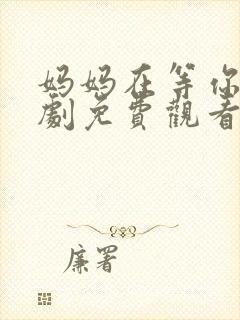 妈妈在等你
劇免費觀看
廉署